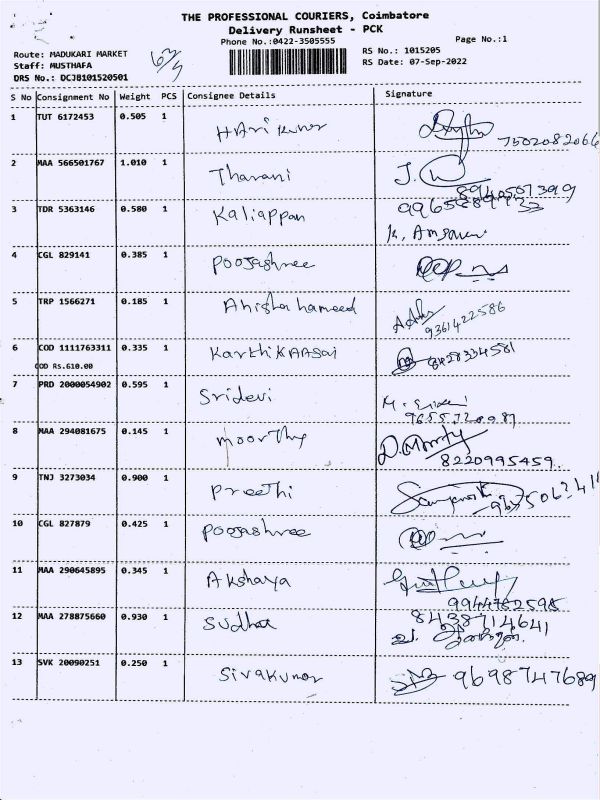 THE PROFESSIONAL COURIERS, Coimbatore
Delivery Runsheet - PCK
Phone No.:0422-3505555
Page No.:1
Route: MADUKARI MARKET
Staff: MUSTHAFA
DRS No.: DCJB101520501
RS No.: 1015205
RS Date: 07-Sep-2022
S No Consignment No Weight PCS Consignee Details Signature
1 TUT 6172453 0.505 1 HAri kumar
7502082066
2 MAA 566501767 1.010 1 Tharani J.
3 TDR 5363146 0.580 1 Kaliappan
4 CGL 829141 0.385 1 Poojashree
5 TRP 1566271 0.185 1 Ahisha hameed
9361422586
6 COD 1111763311 0.335 1 8428334581
COD Rs.610.00
7 PRD 2000054902 0.595 1 Sridevi
8 MAA 294081675 0.145 1 moorthy D. Moorty
8220995459
9 TNJ 3273034 0.900 1 Preethi
10 CGL 827879 0.425 1 Poojashree
11 MAA 290645895 0.345 1 Akshaya
9944762598
12 MAA 278875660 0.930 1 Sudha 8438714641
13 SVK 20090251 0.250 1 Sivakumar 9698747689